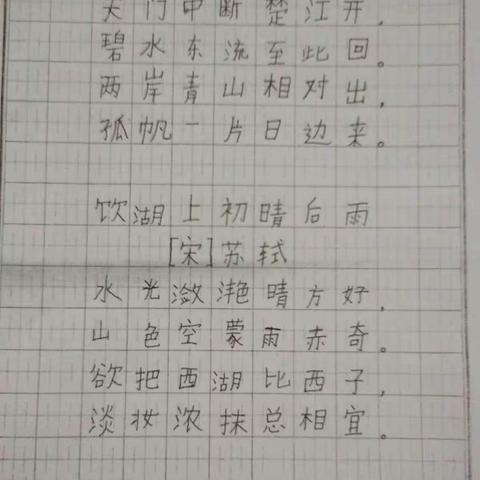 天门中断楚江开，
碧水东流至此回。
两岸青山相对出，
孤帆一片日边来。
饮湖上初晴后雨
[宋]苏轼
水光潋滟晴方好，
山色空蒙雨赤奇。
欲把西湖比西子，
淡妆浓抹总相宜。